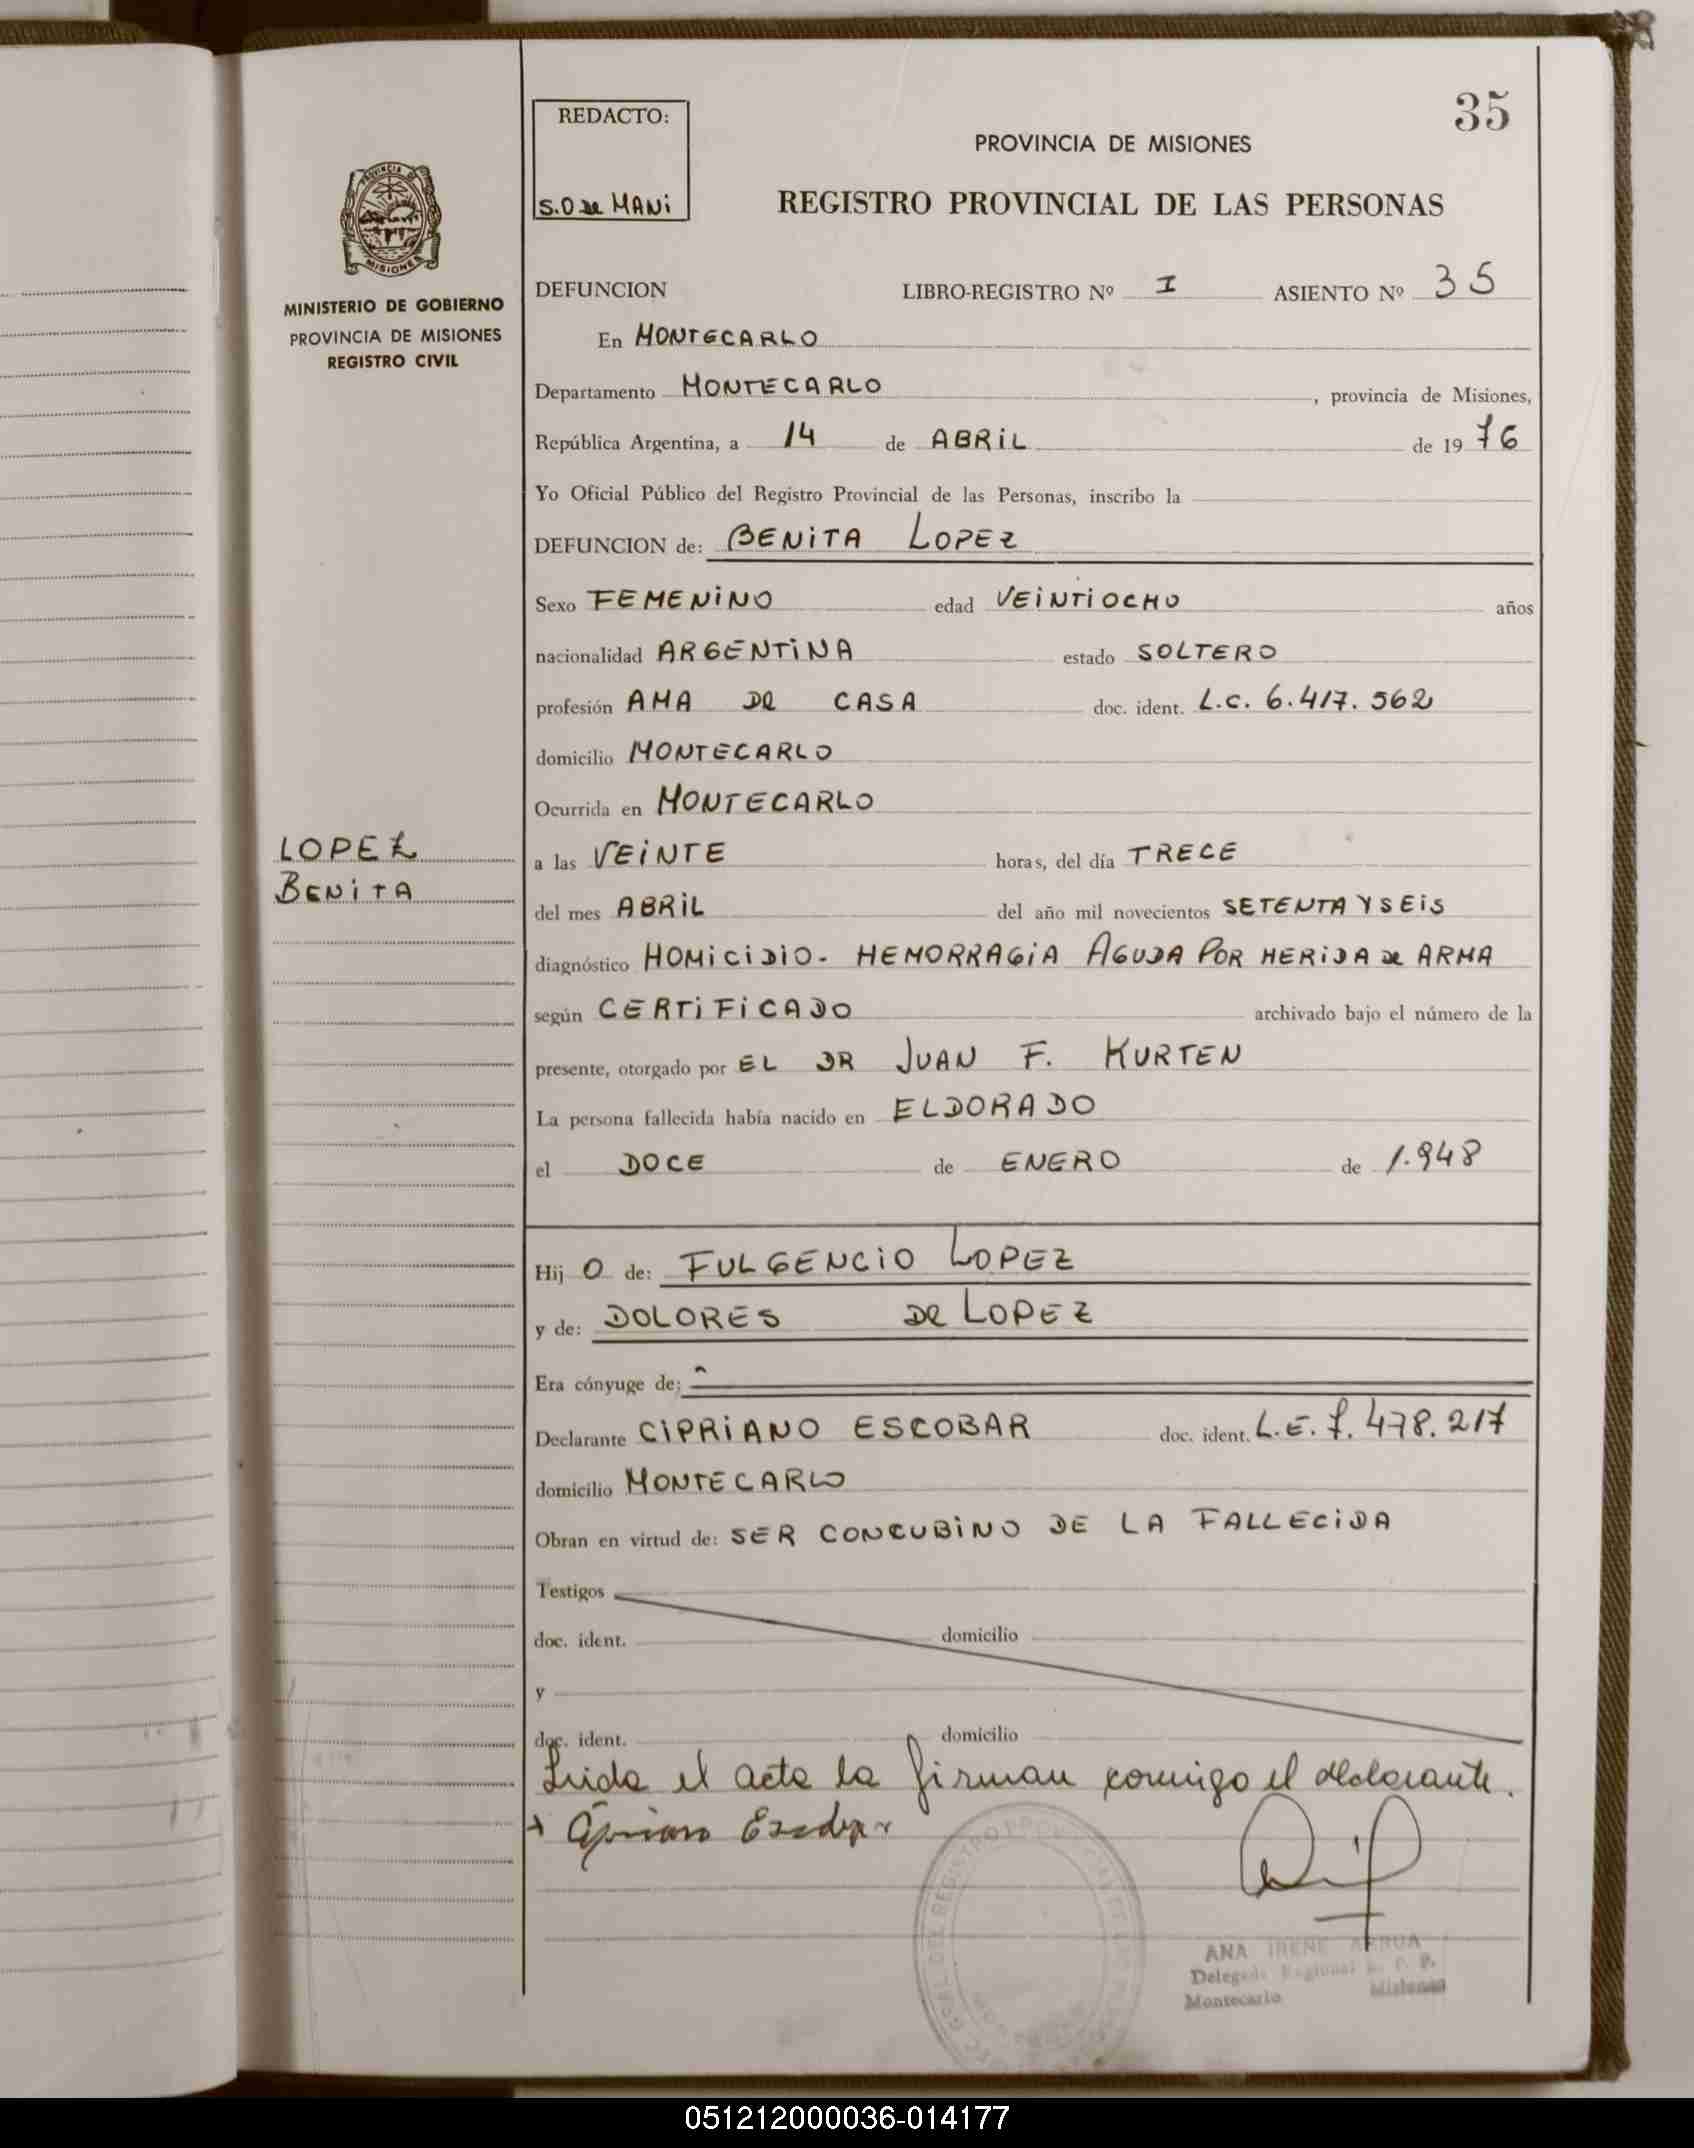 35
REDACTO:
S.O de MANi
PROVINCIA DE MISIONES
REGISTRO PROVINCIAL DE LAS PERSONAS
MISIONES
MINISTERIO DE GOBIERNO
PROVINCIA DE MISIONES
REGISTRO CIVIL
LOPEZ
BENiTA
DEFUNCION LIBRO-REGISTRO Nº I ASIENTO Nº 35
En MONTECARLO
Departamento MONTECARLO, provincia de Misiones,
República Argentina, a 14 de ABRiL de 1976
Yo Oficial Público del Registro Provincial de las Personas, inscribo la
DEFUNCION de: BENiTA LOPEZ
Sexo FEMENiNO edad VEiNTiOCHO años
nacionalidad ARGENTiNA estado SOLTERO
profesión AMA DE CASA doc. ident. L.C. 6.417.562
domicilio MONTECARLO
Ocurrida en MONTECARLO
a las VEiNTE horas, del día TRECE
del mes ABRiL del año mil novecientos SETENTA Y SEiS
diagnóstico HOMiCiDiO- HEMORRAGiA AGUDA POR HERiDA de ARMA
según CERTiFiCADO archivado bajo el número de la
presente, otorgado por EL DR JUAN F. KURTEN
La persona fallecida había nacido en ELDORADO
el DOCE de ENERO de 1.948
Hij O de: FULGENCiO LOPEZ
y de: DOLORES DE LOPEZ
Era cónyuge de:
Declarante CiPRiANO ESCOBAR doc. ident. L.E. 7.478.217
domicilio MONTECARLO
Obran en virtud de: SER CONCUBiNO DE LA FALLECiDA
Testigos
doc. ident. domicilio
y
doc. ident. domicilio
Leida el acta la firman comigo el declarante.
ANA IRENE ARRUA
Montecarlo Misiones
051212000036-014177